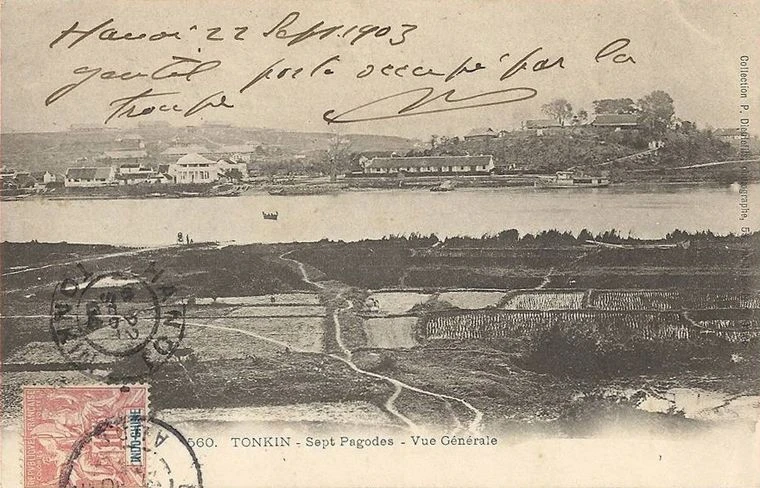 Hanoi 22 Sept. 1903
gentil poste occupé par la
troupe
Collection P. Dieulefils, Photographe, 53
HANOI
TONKIN
INDO-CHINE
560. TONKIN - Sept Pagodes - Vue Générale